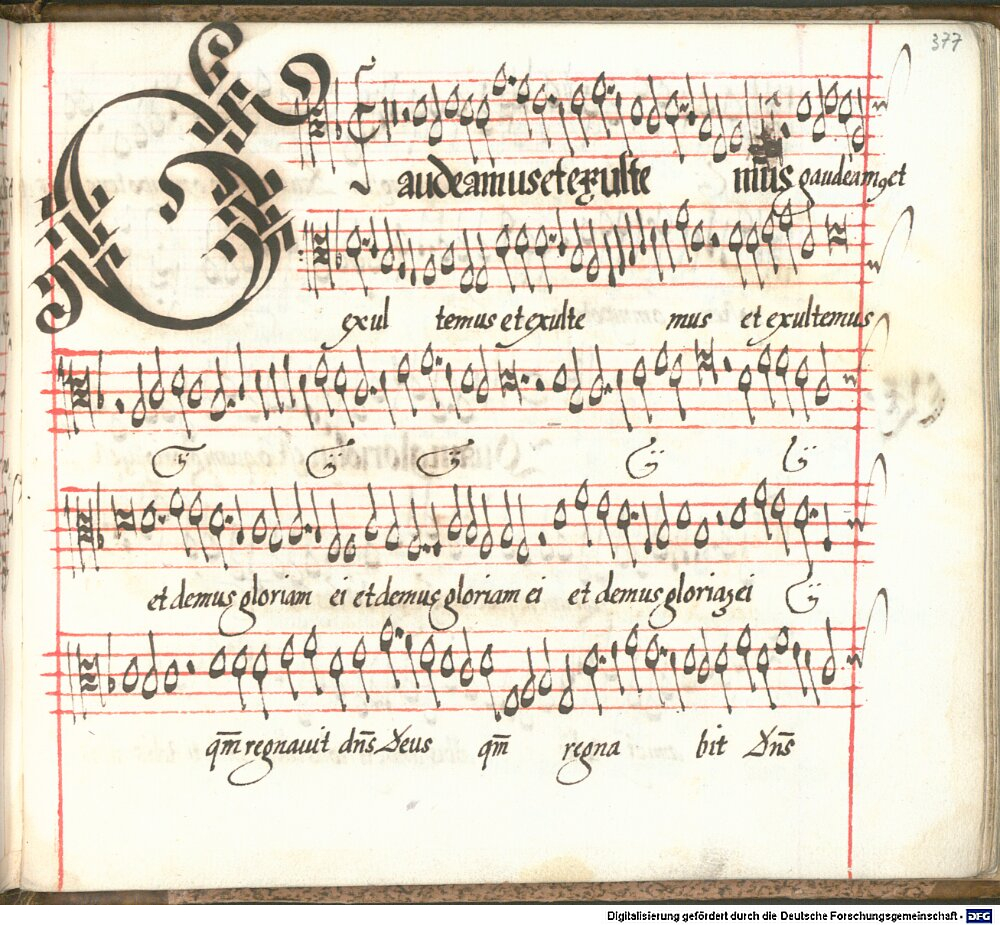 377
Gaudeamus et exulte mus gaudeamꝯ et
exul temus et exulte mus et exultemus
ij ij ij ij ij
et demus gloriam ei et demus gloriam ei et demus gloriaꝫ ei ij
qm̄ regnauit dn̄s Deus qm̄ regna bit Dn̄s
Digitalisierung gefördert durch die Deutsche Forschungsgemeinschaft - DFG